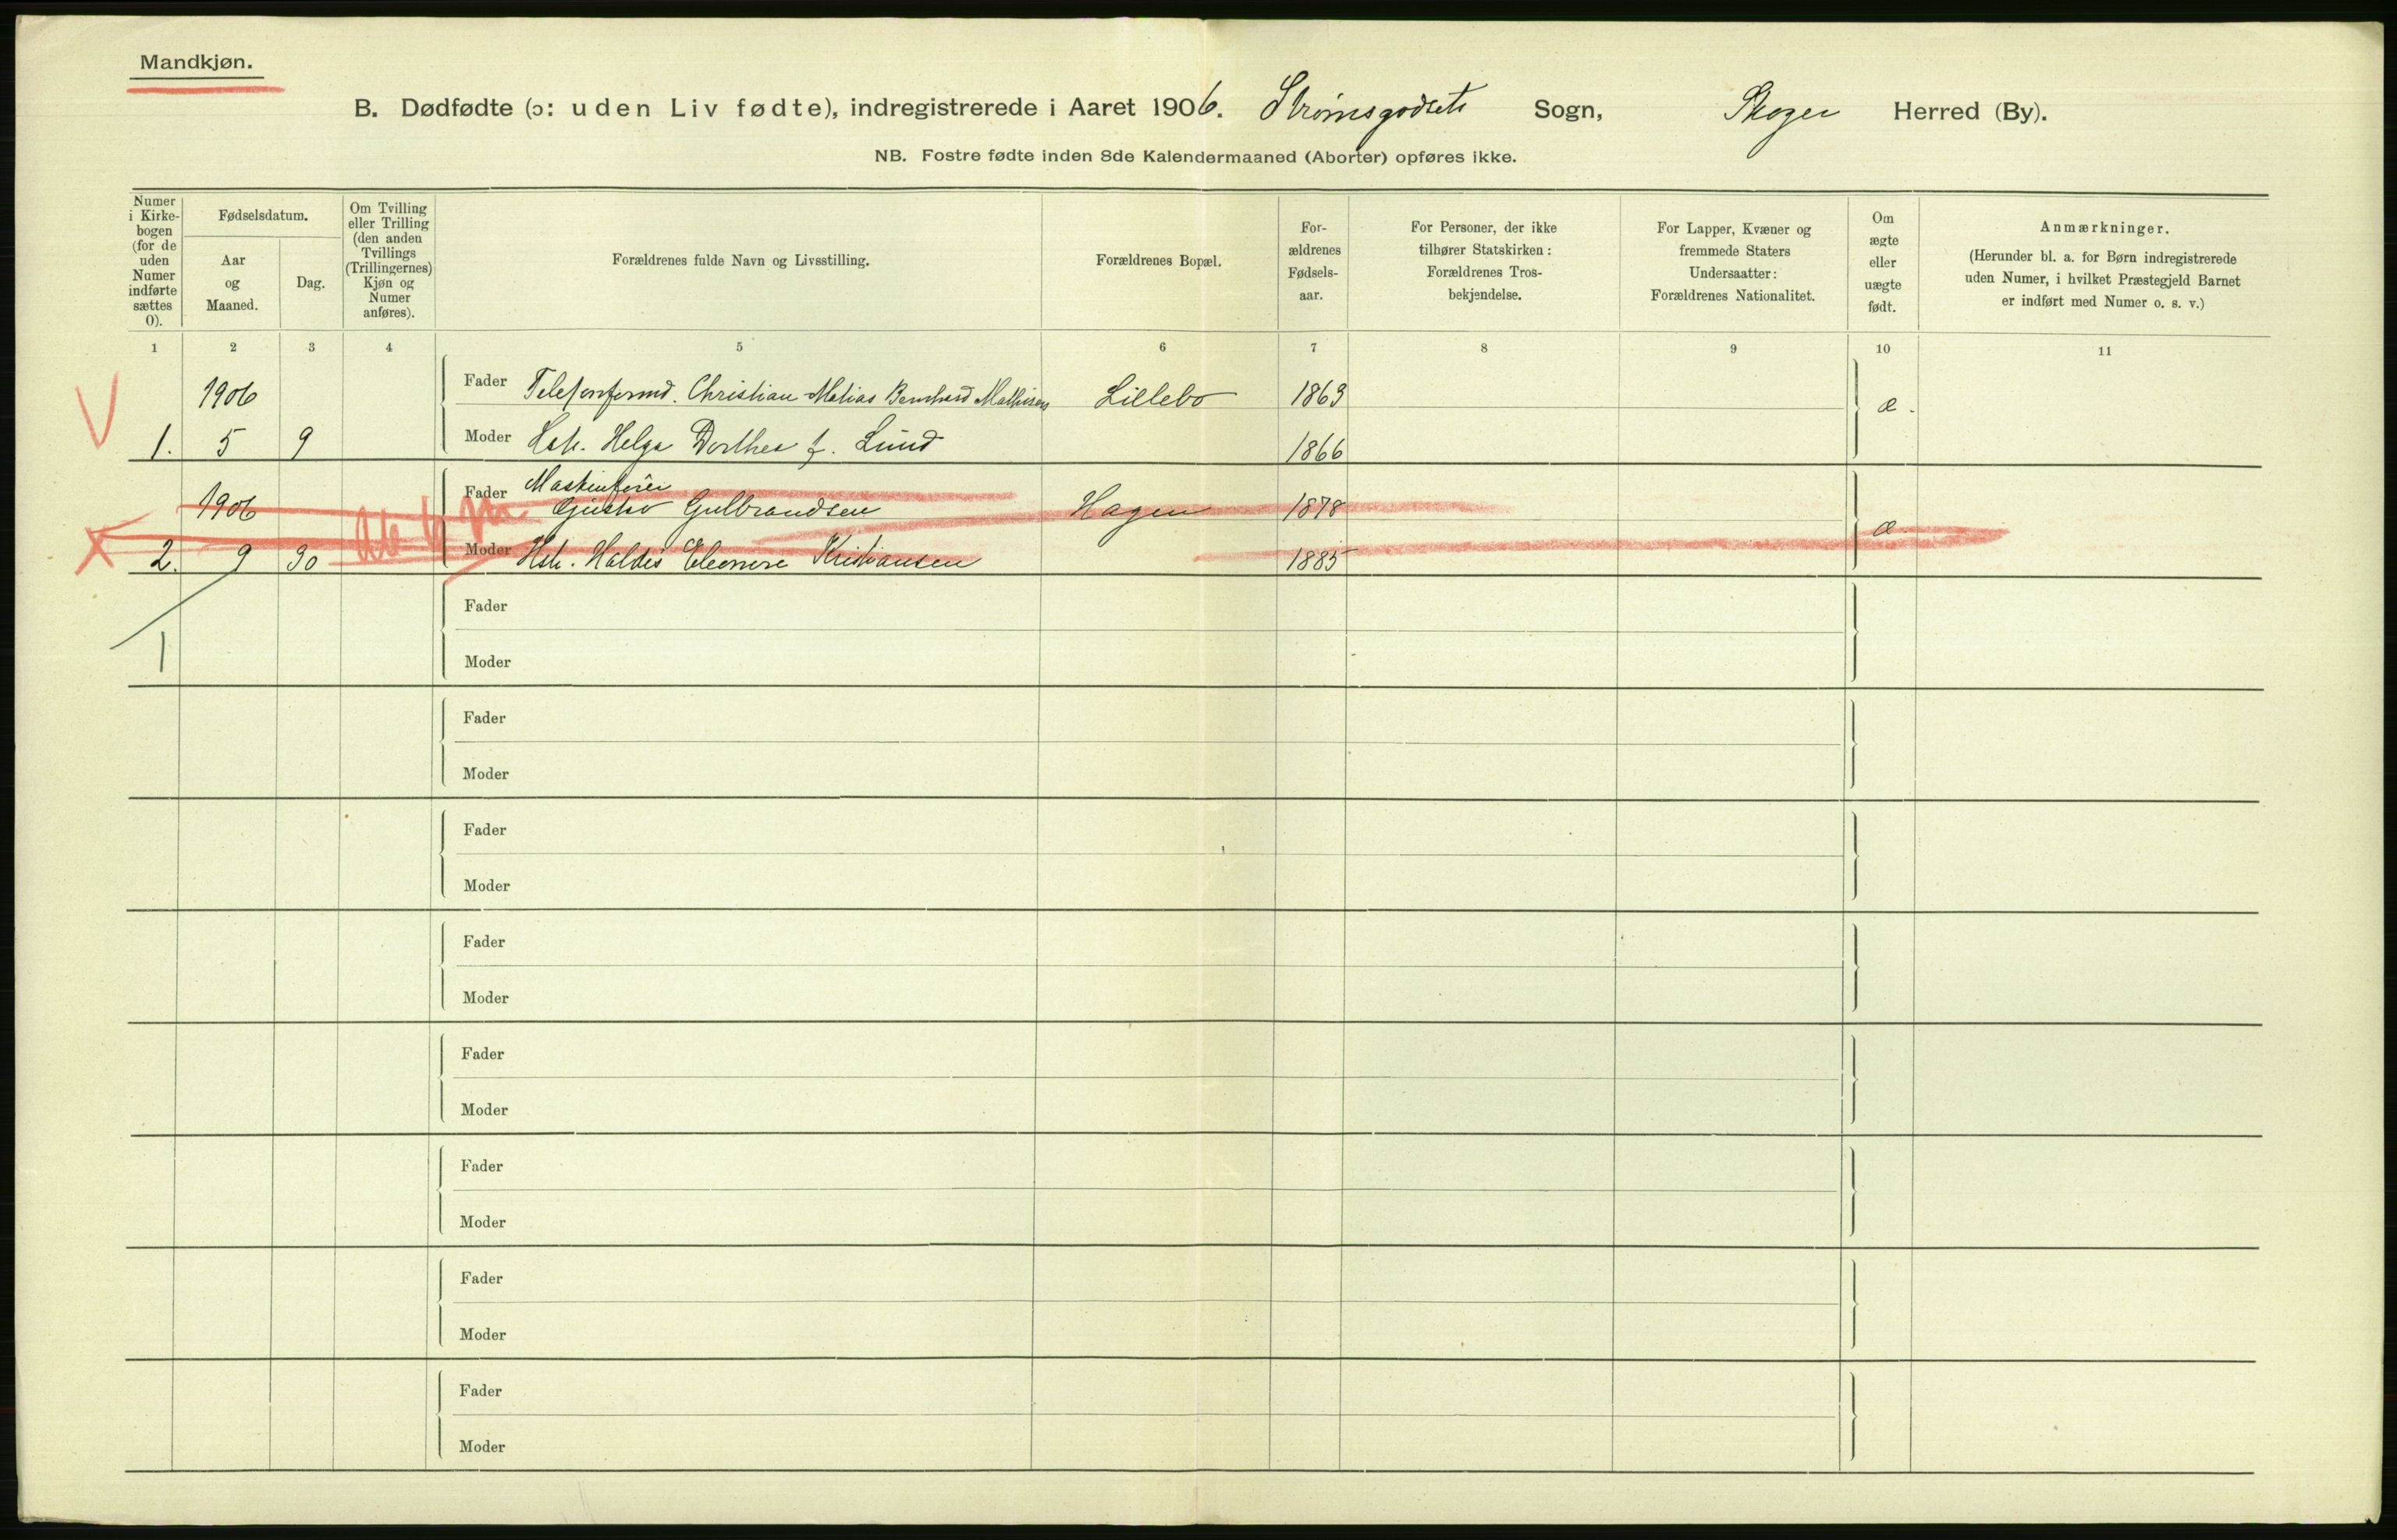 Mandkjøn.
B. Dødfødte (ɔ: uden Liv fødte), indregistrerede i Aaret 1906. Strømsgodsets Sogn, Skoger Herred (By).
NB. Fostre fødte inden 8de Kalendermaaned (Aborter) opføres ikke.
Numer i Kirkebogen (for de uden Numer indførte sættes 0).
Fødselsdatum.
Aar og Maaned.
Dag.
Om Tvilling eller Trilling (den anden Tvillings (Trillingernes) Kjøn og Numer anføres).
Forældrenes fulde Navn og Livsstilling.
Forældrenes Bopæl.
Forældrenes Fødselsaar.
For Personer, der ikke tilhører Statskirken: Forældrenes Trosbekjendelse.
For Lapper, Kvæner og fremmede Staters Undersaatter: Forældrenes Nationalitet.
Om ægte eller uægte født.
Anmærkninger.
(Herunder bl. a. for Børn indregistrerede uden Numer, i hvilket Præstegjeld Barnet er indført med Numer o. s. v.)
1 2 3 4 5 6 7 8 9 10 11
1906 Fader Telefonformd. Christian Matias Bernhard Mathisen Lillebo 1863 æ.
1. 5 9 Moder Hstr. Helga Dorthea f. Lund 1866
Maskinfører
1906 Fader Gustav Gulbrandsen Hagen 1878 æ
2. 9 30 Moder Hstr. Haldis Eleonore Kristiansen 1885
Fader
1
Moder
Fader
Moder
Fader
Moder
Fader
Moder
Fader
Moder
Fader
Moder
Fader
Moder
Fader
Moder